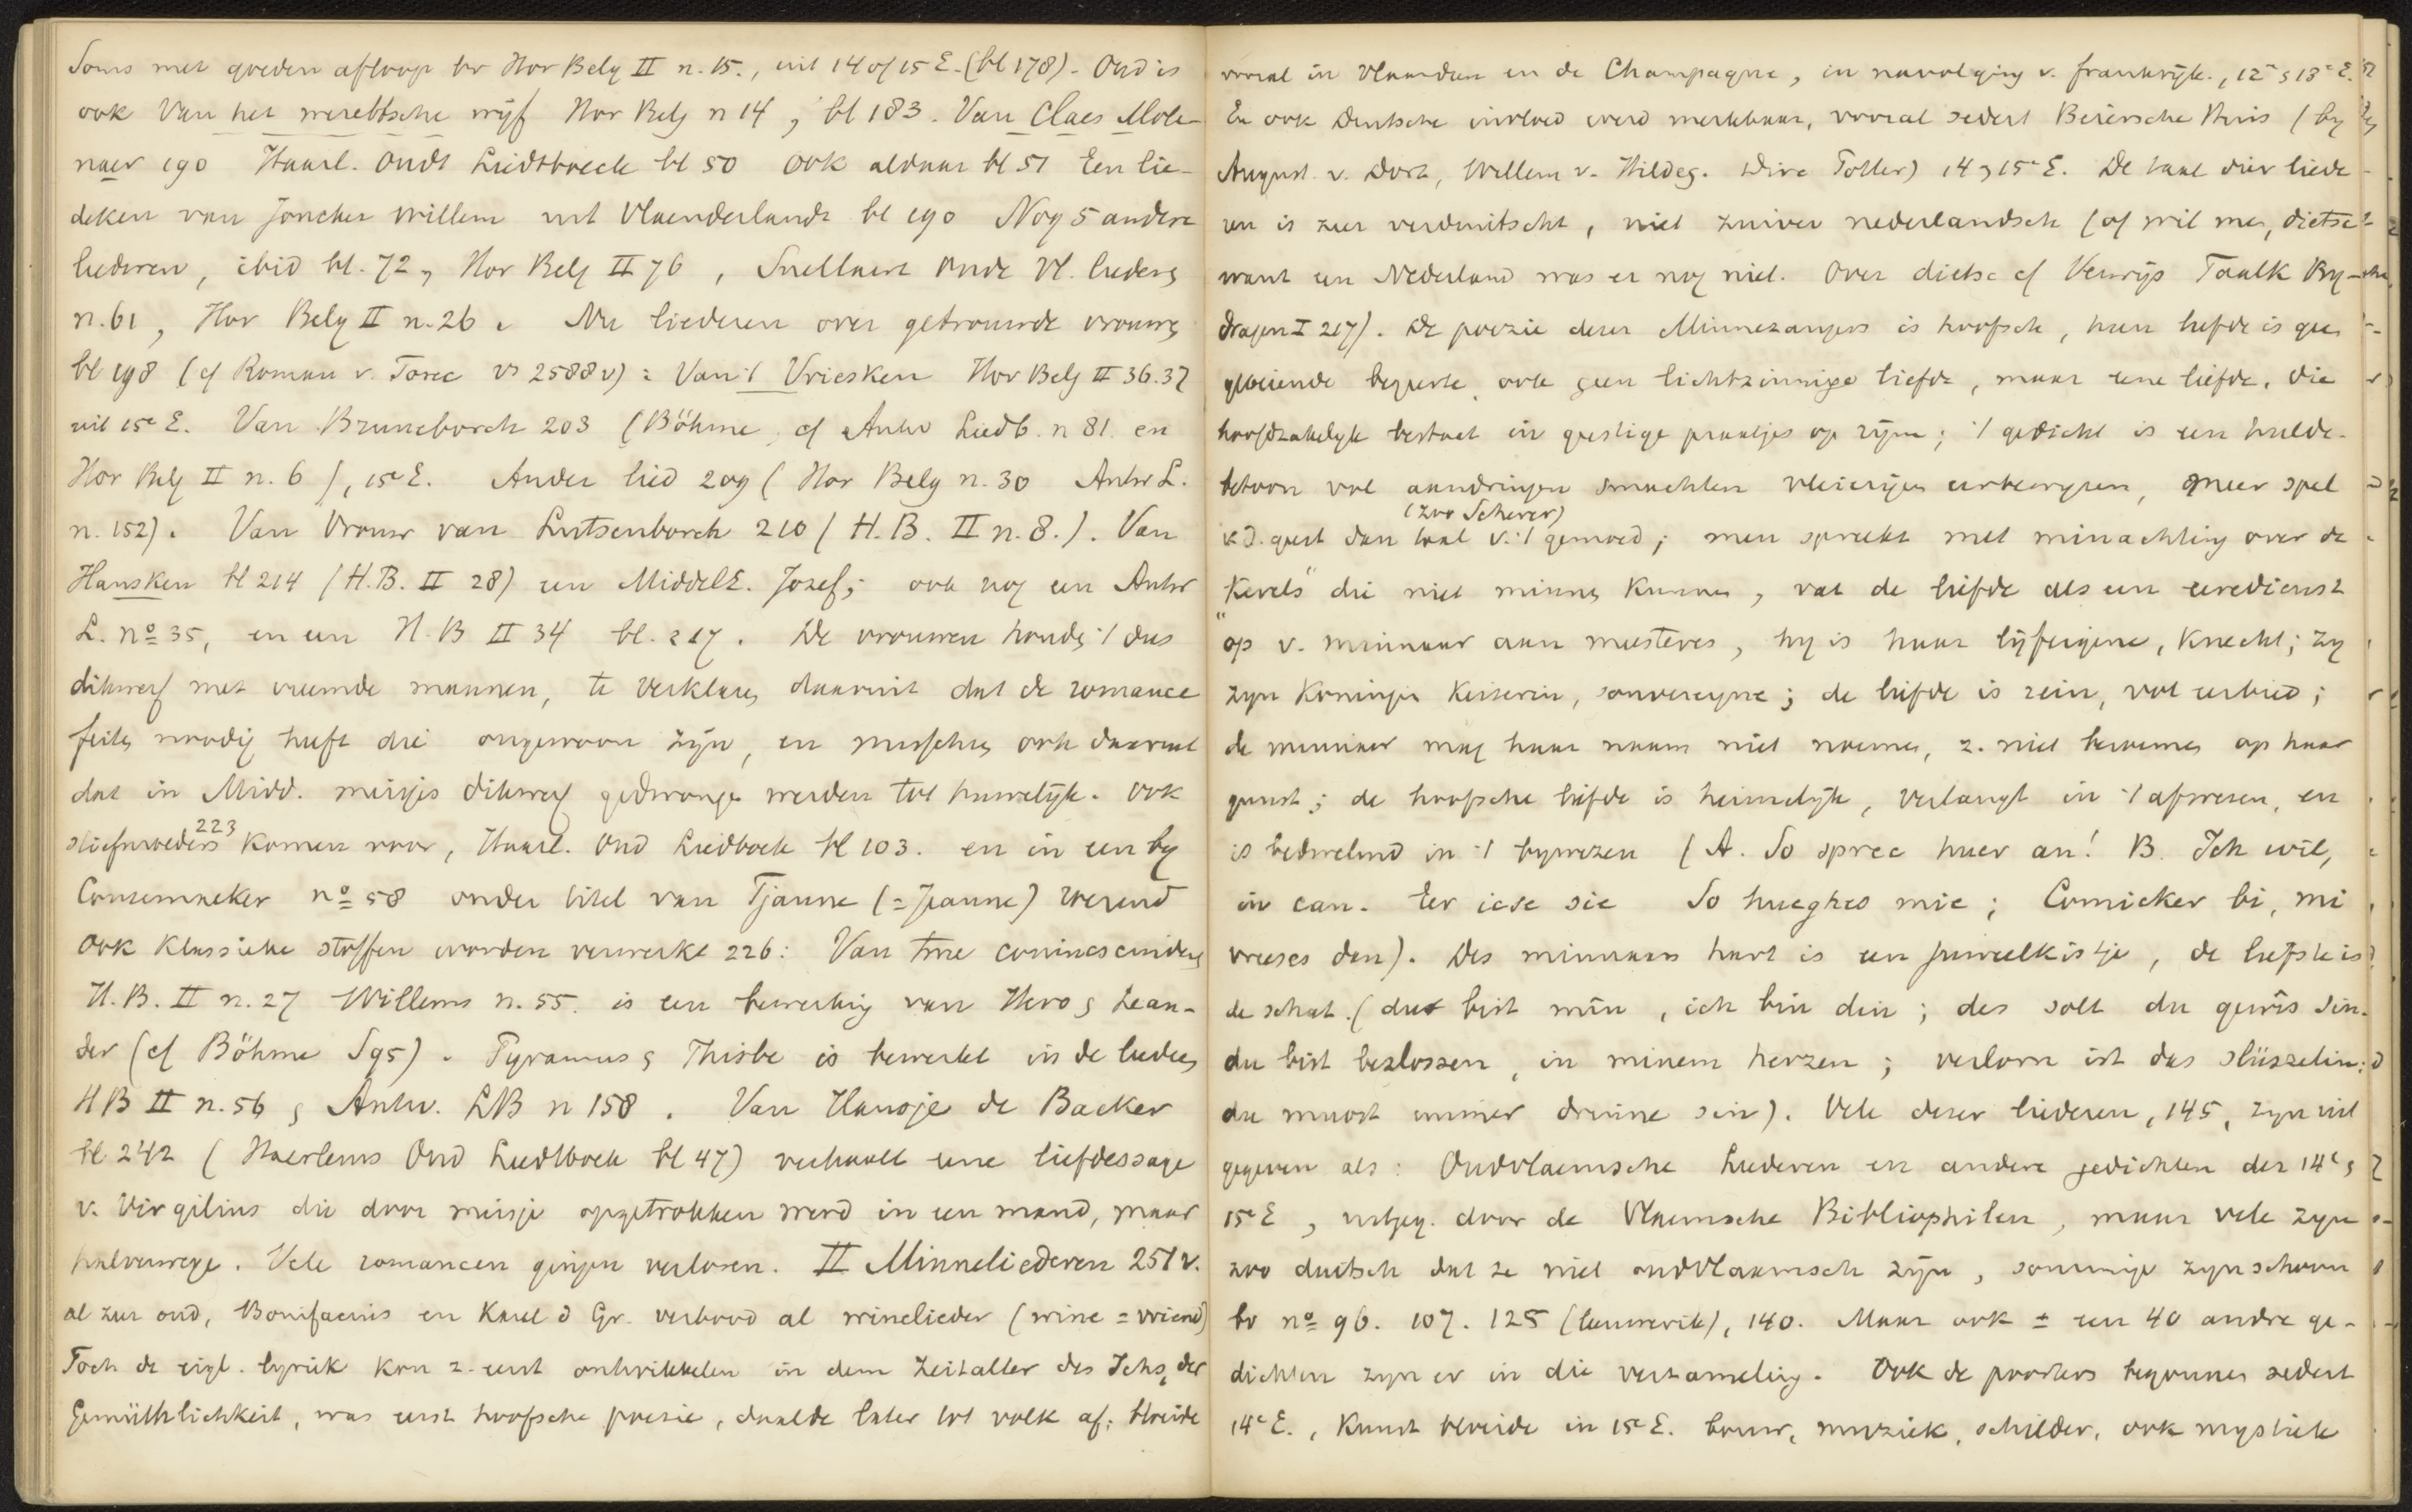 Soms met goeden afloop bv Hor Belg II n. 15., uit 14 of 15 E. (bl 178). Oud is
ook Van het wereltsche wijf Hor Belg n 14, bl 183. Van Claes Mole-
naer 190 Haarl. Oudt Liedtboeck bl 50 ook aldaar bl 51 Een lie-
deken van Joncher Willem uit Vlaenderlandt bl 190 Nog 5 andere
liederen, ibid bl. 72, Hor Belg II 76, Snellaert Oude Vl. lieders
n. 61, Hor Belg II n. 26. Nu liederen over getrouwde vrouws
bl 198 (cf Roman v. Torec vs 2588v): Van 't Vriesken Hor Belg II 36.37
uit 15e E. Van Bruneborch 203 (Böhme, cf Antw Liedb. n 81. en
Hor Belg II n. 6), 15e E. Ander lied 209 (Hor Belg n. 30 Antw L.
n. 152). Van Vrouw van Lutsenborch 210 (H.B. II n. 8.). Van
Hansken bl 214 (H.B. II 28) een MiddelE. Jozef; ook nog een Antw
L. no 35, en een H.B II 34 bl. 217. De vrouwen houds 't dus
dikwerf met vreemde mannen, te verklaren daaruit dat de romance
feits noodig heeft die ongewoon zijn, en misschn ook daaruit
dat in Midd. meisjes dikwerf gedwongn werden tot huwelijk. Ook
stiefmoeders 223 komen voor, Haarl. Oud Liedboek bl 103. en in een by
Coussemaeker no 58 onder titel van Tjanne (= Jeanne)
Ook klassieke stoffen worden verwerkt 226: Van twe conincskinders
H.B. II n. 27 Willems n. 55. is een bewerking van Hero & Lean-
der (cf Böhme S 95). Pyramus & Thisbe is bewerkt in de liedes
HB II n. 56 & Antw. LB n 158. Van Hansje de Backer
bl 242 (Haerlems Oud Liedtboek bl 47) verhaalt eene liefdessage
v. Virgilius die door meisje opgetrokken werd in een mand, maar
halverwege. Vele romancen gingen verloren. II Minneliederen 251v.
al zeer oud, Bonifacius en Karel d Gr. verbood al winelieder (wine = vriend)
Toch de eigl. lyriek kon z. eerst ontwikkelen in dem Zeitalter des Ichs, der
Gemüthlichkeit, was eerst hoofsche poezie, daalde later tot volk af; bloeide
vooral in Vlaandren en de Champagne, in navolging v. frankrijk., 12e & 13e E.
En ook Duitsche invloed werd merkbaar, vooral sedert Beiersche Huis (by
August. v. Dort, Willem v. Hildeg. Dirc Potter) 14 & 15e E. De taal dier liede
ren is zeer verduitscht, niet zuiver nederlandsch (of wil men, dietsc
want een Nederland was er nog niet. Over dietsc cf Verwijs Taalk By-
dragen I 217). De poezie dezer Minnezangers is hoofsch, hun liefde is geen
gloeiende begeerte, ook geen lichtzinnige liefde, maar eene liefde, die
hoofdzakelyk bestaat in geestige praatjes op rijm; 't gedicht is een hulde-
betoon vol aandringen smachten vleierijen eerbewyzen, meer spel
v. d. geest dan taal v. 't gemoed (zoo Scherer); men spreekt met minachting over de
"Kerels" die niet minns kunnen, vat de liefde als een eeredienst
op v. minnaar aan meesteres, hy is haar lijfeigene, knecht; zy
zyn koningin keizerin, souvereyne; de liefde is rein, vol eerbied;
de minnaar mag haar naam niet noemen, z. niet beroemen op haar
gunst; de hoofsche liefde is heimelijk, verlangt in 't afwezen, en
is bedwelmd in 't bywezen (A. So sprec haer an! B. Ich wil,
in can. Eer icse sie So hueghes mic; Comicker bi, mi
vreeses dan). Des minnaars hart is een juweelkistje, de liefste is
de schat. (du bist mîn, ich bin din; des solt du gewis sin.
du bist beslossen, in minem herzen; verlorn ist das slüsselin:
du muost immer drinne sin). Vele dezer liederen, 145, zyn uit
gegeven als: Oudvlaemsche Liederen en andere gedichten der 14e &
15e E, uitgeg. door de Vlaemsche Bibliophilen, maar vele zyn
zoo duitsch dat ze niet oudvlaamsch zijn, sommige zyn schoon
bv no 96. 107. 125, 140. Maar ook ± een 40 andre ge-
dichten zyn er in die verzameling. Ook de poorters begonnen sedert
14e E., kunst bloeide in 15e E. bouw, muziek, schilder, ook mystiek